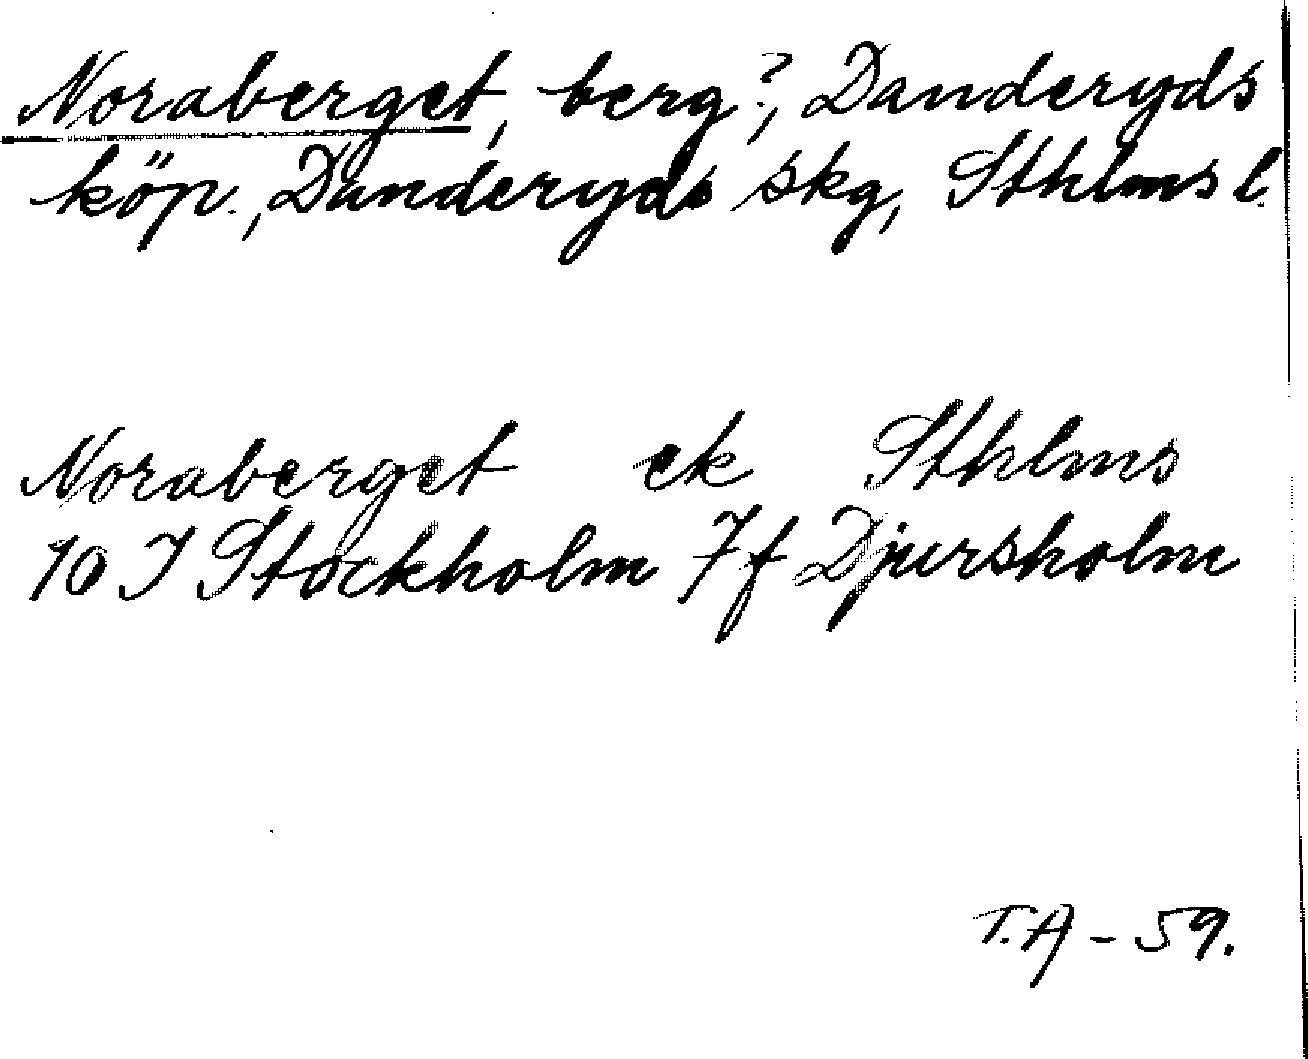 Noraberget, berg?, Danderyds
köp., Danderyds skg, Sthlms l.
Noraberget ek Sthlms
10 I Stockholm 7f Djursholm
T.A - 59.